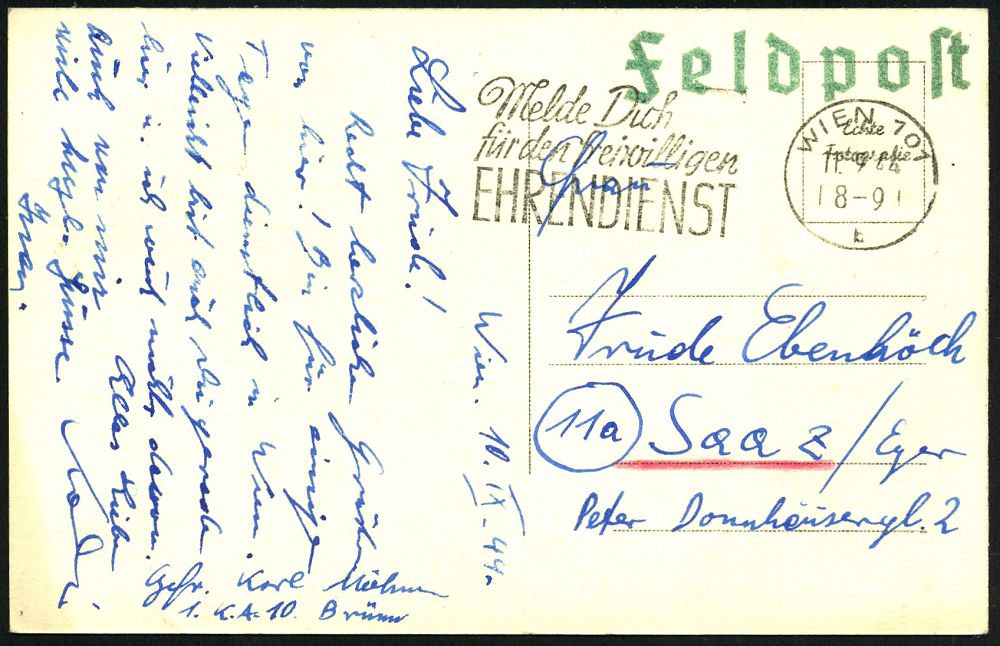 Feldpost
Melde Dich
für den freiwilligen
EHRENDIENST
WIEN 101
Echte
Fotographie
11. 9. 44
18-9
b
Wien. 10. IX. 44.
Liebe Trude!
Recht herzliche Grüße
von hier! Bin für einige
Tage dienstlich in Wien.
Vielleicht bist auch Du gerade
hier u. ich weiß nichts davon.
Alles Liebe
Rudi
auch von mir
viele Grüsse
Gefr. Karl
1. K.A. 10. Brünn
Frau
Trude Ebenhöch
11a Saaz/Eger
Peter Donnhäusergl. 2